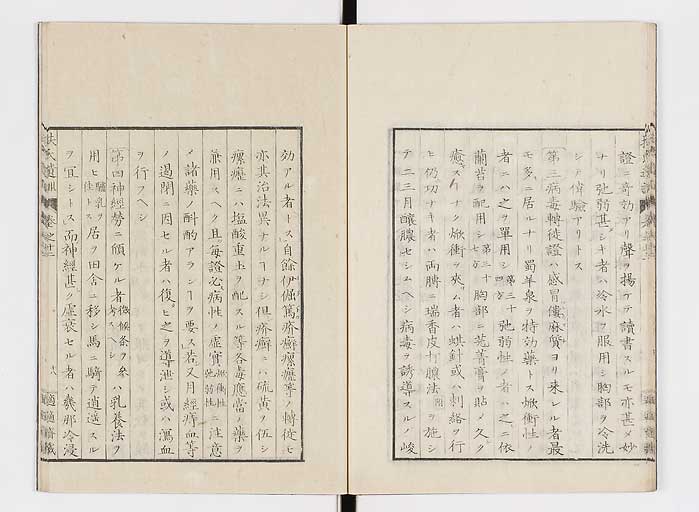 證ニ奇効アリ聲ヲ揚ゲテ讀書スルモ亦甚タ妙
ナリ弛弱甚シキ者ハ冷水ヲ服用シ胸部ヲ冷洗
シテ偉驗アリトス
第三病毒轉徙證ハ感冒僂麻質ヨリ來レル者最
モ多ニ居ルナリ蜀羊泉ヲ特効藥トス焮衝性ノ
者ニハ之ヲ單用シ第三十四方弛弱性ノ者ハ之ニ依
蘭苔ヲ配用シ第三十七方胸部ニ芫菁膏ヲ貼メ久ク
癒スナク焮衝ヲ夾ム者ハ蜞針或ハ刺絡ヲ行
ヒ仍功ナキ者ハ両膊ニ瑞香皮打膿法附ヲ施シ
テ二三月釀膿セシムヘシ病毒ヲ誘導スルノ峻
効アル者トス自餘伊倔篤疥癬瘰癧等ノ轉徙モ
亦其治法異ナルナシ但疥癬ニハ硫黄ヲ伍シ
瘰癧ニハ塩酸重土ヲ配スル等各毒應當ノ藥ヲ
兼用スヘク且每證必病性ノ虛實焮衝性弛弱性ニ注意
メ諸藥ノ斟酌アランヲ要ス若又月經痔血等
ノ過閉ニ因セル者ハ復ヒ之ヲ導泄シ或ハ瀉血
ヲ行フヘシ
第四神經勞ニ傾ケル者徴候条ヲ参考スヘシハ乳養法ヲ
用ヒ驢乳ヲ佳トス居ヲ田舎ニ移シ馬ニ騎テ逍遥スル
ヲ宜シトス而神經甚ク虛衰セル者ハ幾那冷浸
扶氏遺訓
卷之十三
適適齋藏